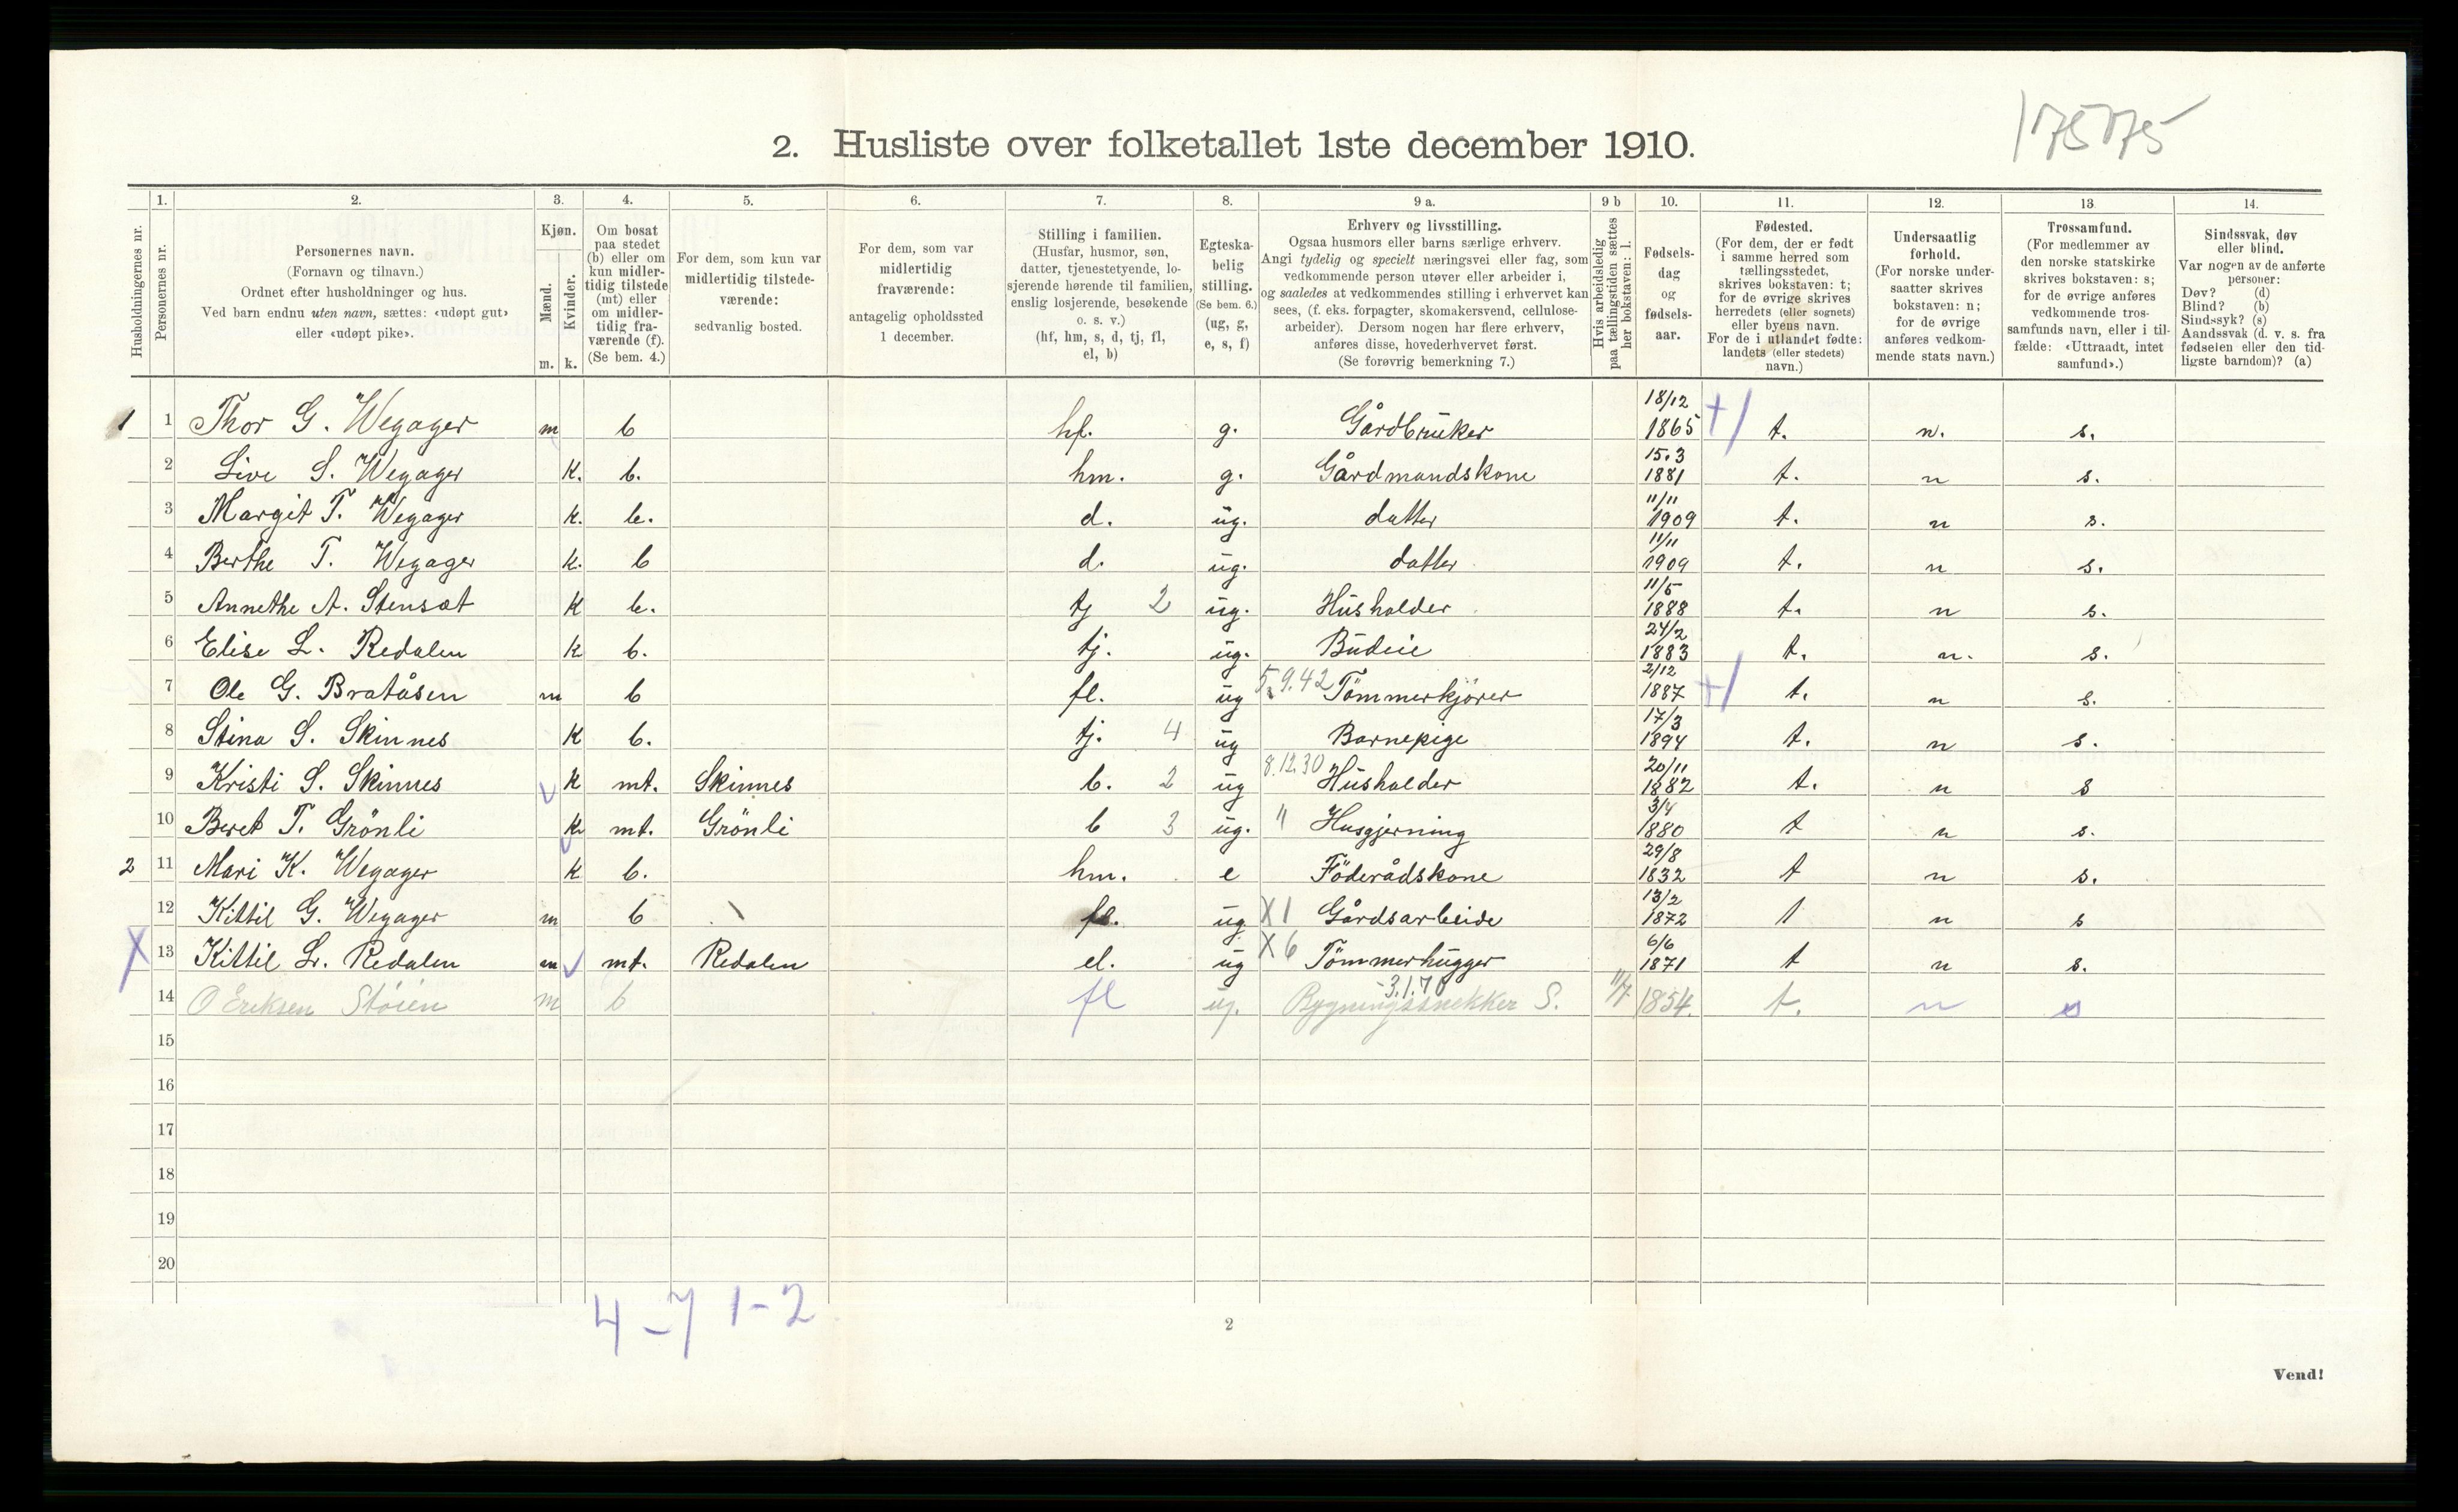 175 175
2. Husliste over folketallet 1ste december 1910.
1. 2. 3. 4. 5. 6. 7. 8. 9 a. 9 b 10. 11. 12. 13. 14.
Husholdningernes nr.
Personernes nr.
Personernes navn.
(Fornavn og tilnavn.)
Ordnet efter husholdninger og hus.
Ved barn endnu uten navn, sættes: «udøpt gut»
eller «udøpt pike».
Kjøn.
Mænd.
Kvinder.
m. k.
Om bosat
paa stedet
(b) eller om
kun midler-
tidig tilstede
(mt) eller
om midler-
tidig fra-
værende (f).
(Se bem. 4.)
For dem, som kun var
midlertidig tilstede-
værende:
sedvanlig bosted.
For dem, som var
midlertidig
fraværende:
antagelig opholdssted
1 december.
Stilling i familien.
(Husfar, husmor, søn,
datter, tjenestetyende, lo-
sjerende hørende til familien,
enslig losjerende, besøkende
o. s. v.)
(hf, hm, s, d, tj, fl,
el, b)
Egteska-
belig
stilling.
(Se bem. 6.)
(ug, g,
e, s, f)
Erhverv og livsstilling.
Ogsaa husmors eller barns særlige erhverv.
Angi tydelig og specielt næringsvei eller fag, som
vedkommende person utøver eller arbeider i,
og saaledes at vedkommendes stilling i erhvervet kan
sees, (f. eks. forpagter, skomakersvend, cellulose-
arbeider). Dersom nogen har flere erhverv,
anføres disse, hovederhvervet først.
(Se forøvrig bemerkning 7.)
Hvis arbeidsledig
paa tællingstiden sættes
her bokstaven: l.
Fødsels-
dag
og
fødsels-
aar.
Fødested.
(For dem, der er født
i samme herred som
tællingsstedet,
skrives bokstaven: t;
for de øvrige skrives
herredets (eller sognets)
eller byens navn.
For de i utlandet fødte:
landets (eller stedets)
navn.)
Undersaatlig
forhold.
(For norske under-
saatter skrives
bokstaven: n;
for de øvrige
anføres vedkom-
mende stats navn.)
Trossamfund.
(For medlemmer av
den norske statskirke
skrives bokstaven: s;
for de øvrige anføres
vedkommende tros-
samfunds navn, eller i til-
fælde: «Uttraadt, intet
samfund».)
Sindssvak, døv
eller blind.
Var nogen av de anførte
personer:
Døv? (d)
Blind? (b)
Sindssyk? (s)
Aandssvak (d. v. s. fra
fødselen eller den tid-
ligste barndom)? (a)
1 1 Thor G. Wegager m b hf. g. Gårdbrüker 18/12 1865 t. n. s.
2 Live S. Wegager K. b. hm. g. Gårdmandskone 15.3 1881 t. n s.
3 Margit T. Wegager K. b. d. üg. datter 11/11 1909 t. n s.
4 Berthe T. Wegager K. b d. üg. datter 11/11 1909 t. n s.
5 Annethe A. Stensæt K b. tj 2 üg. Hüsholder 11/5 1888 t. n s.
6 Elise L. Redalen K b. tj. üg. Büdeie 24/2 1883 t. n. s.
7 Ole G. Bratåsen m b fl. üg 5.9.42 Tömmerkjörer 2/12 1887 t. n s.
8 Stina S. Skinnes K b. tj. 4 üg Barnepige 17/3 1894 t. n s.
9 Kristi S. Skinnes k mt. Skinnes b. 2 üg 8.12.30 Hüsholder 20/11 1882 t. n s
10 Beret T. Grönli K mt. Grönli b 3 üg. " Husgjerning 3/4 1880 t n s.
2 11 Mari K. Wegager K b. hm. e Föderådskone 29/8 1832 t n s.
12 Kittil G. Wegager m b fl. üg X 1 Gårdsarbeide 13/2 1872 t n s
X 13 Kittil L. Redalen m mt. Redalen el. üg X 6 Tömmerhügger 6/6 1871 t n s.
14 O Eriksen Stöien m b fl ug. 3.1.70 Bygningssnekker S. 11/7 1854. t. n s
15
16
17
18
19
20
4-7 1-2
2
Vend!